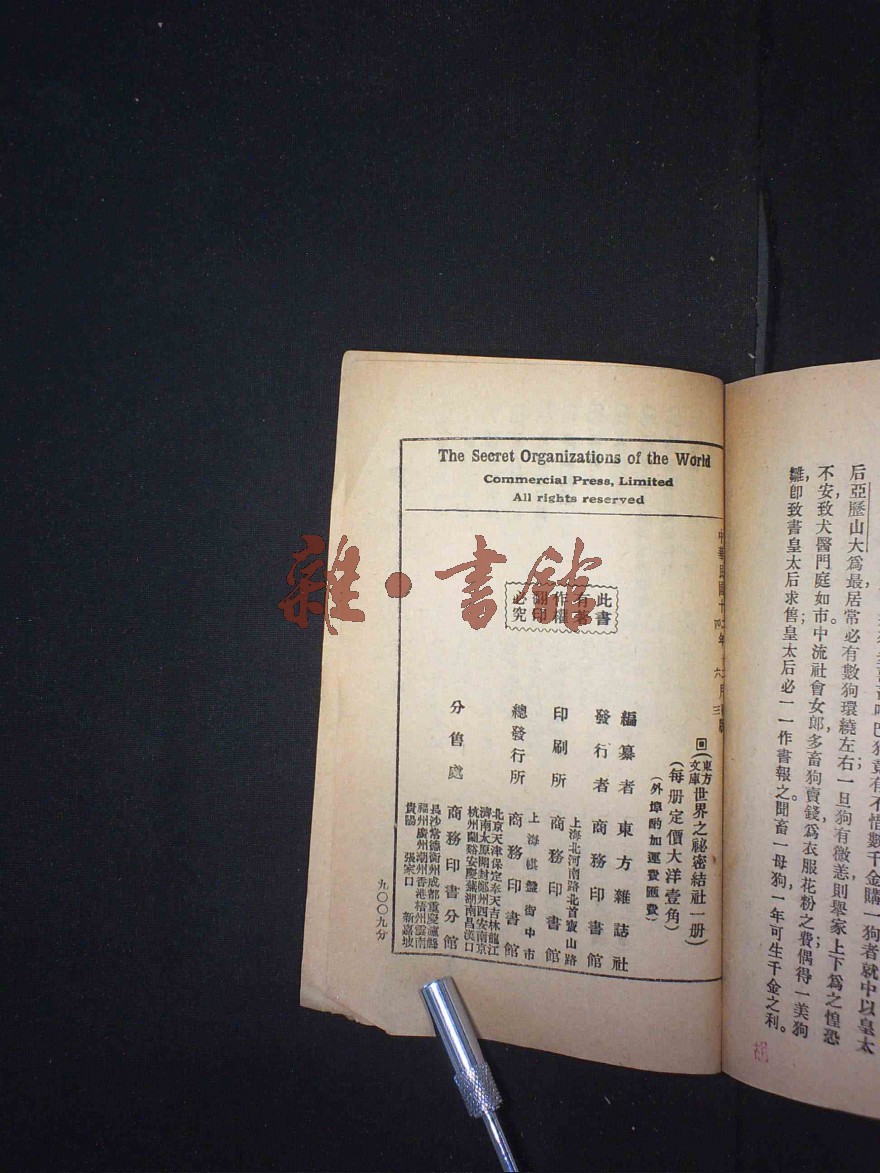 The Secret Organizations of the World
Commercial Press, Limited
All rights reserved
此書
有著
作權
翻印
必究
回(東方文庫)世界之祕密結社一册)
(每册定價大洋壹角)
(外埠酌加運費匯費)
編纂者 東方雜誌社
發行者 商務印書館
上海北河南路北首寶山路
印刷所 商務印書館
上海棋盤街中市
總發行所 商務印書館
北京天津保定奉天吉林龍江
濟南太原開封鄭州西安南京
杭州蘭谿安慶蕪湖南昌漢口
分售處 商務印書分館
長沙常德衡州成都重慶瀘縣
福州廣州潮州香港梧州雲南
貴陽 張家口 新嘉坡
九〇〇九分
后亞歷山大爲最居常必有數狗環繞左右一旦狗有微恙則舉家上下爲之惶恐
不安致犬醫門庭如市;中流社會女郎多畜狗賣錢爲衣服花粉之費;偶得一美狗
雛,卽致書皇太后求售皇太后必一一作書報之聞畜一母狗一年可生千金之利。
雜·書館